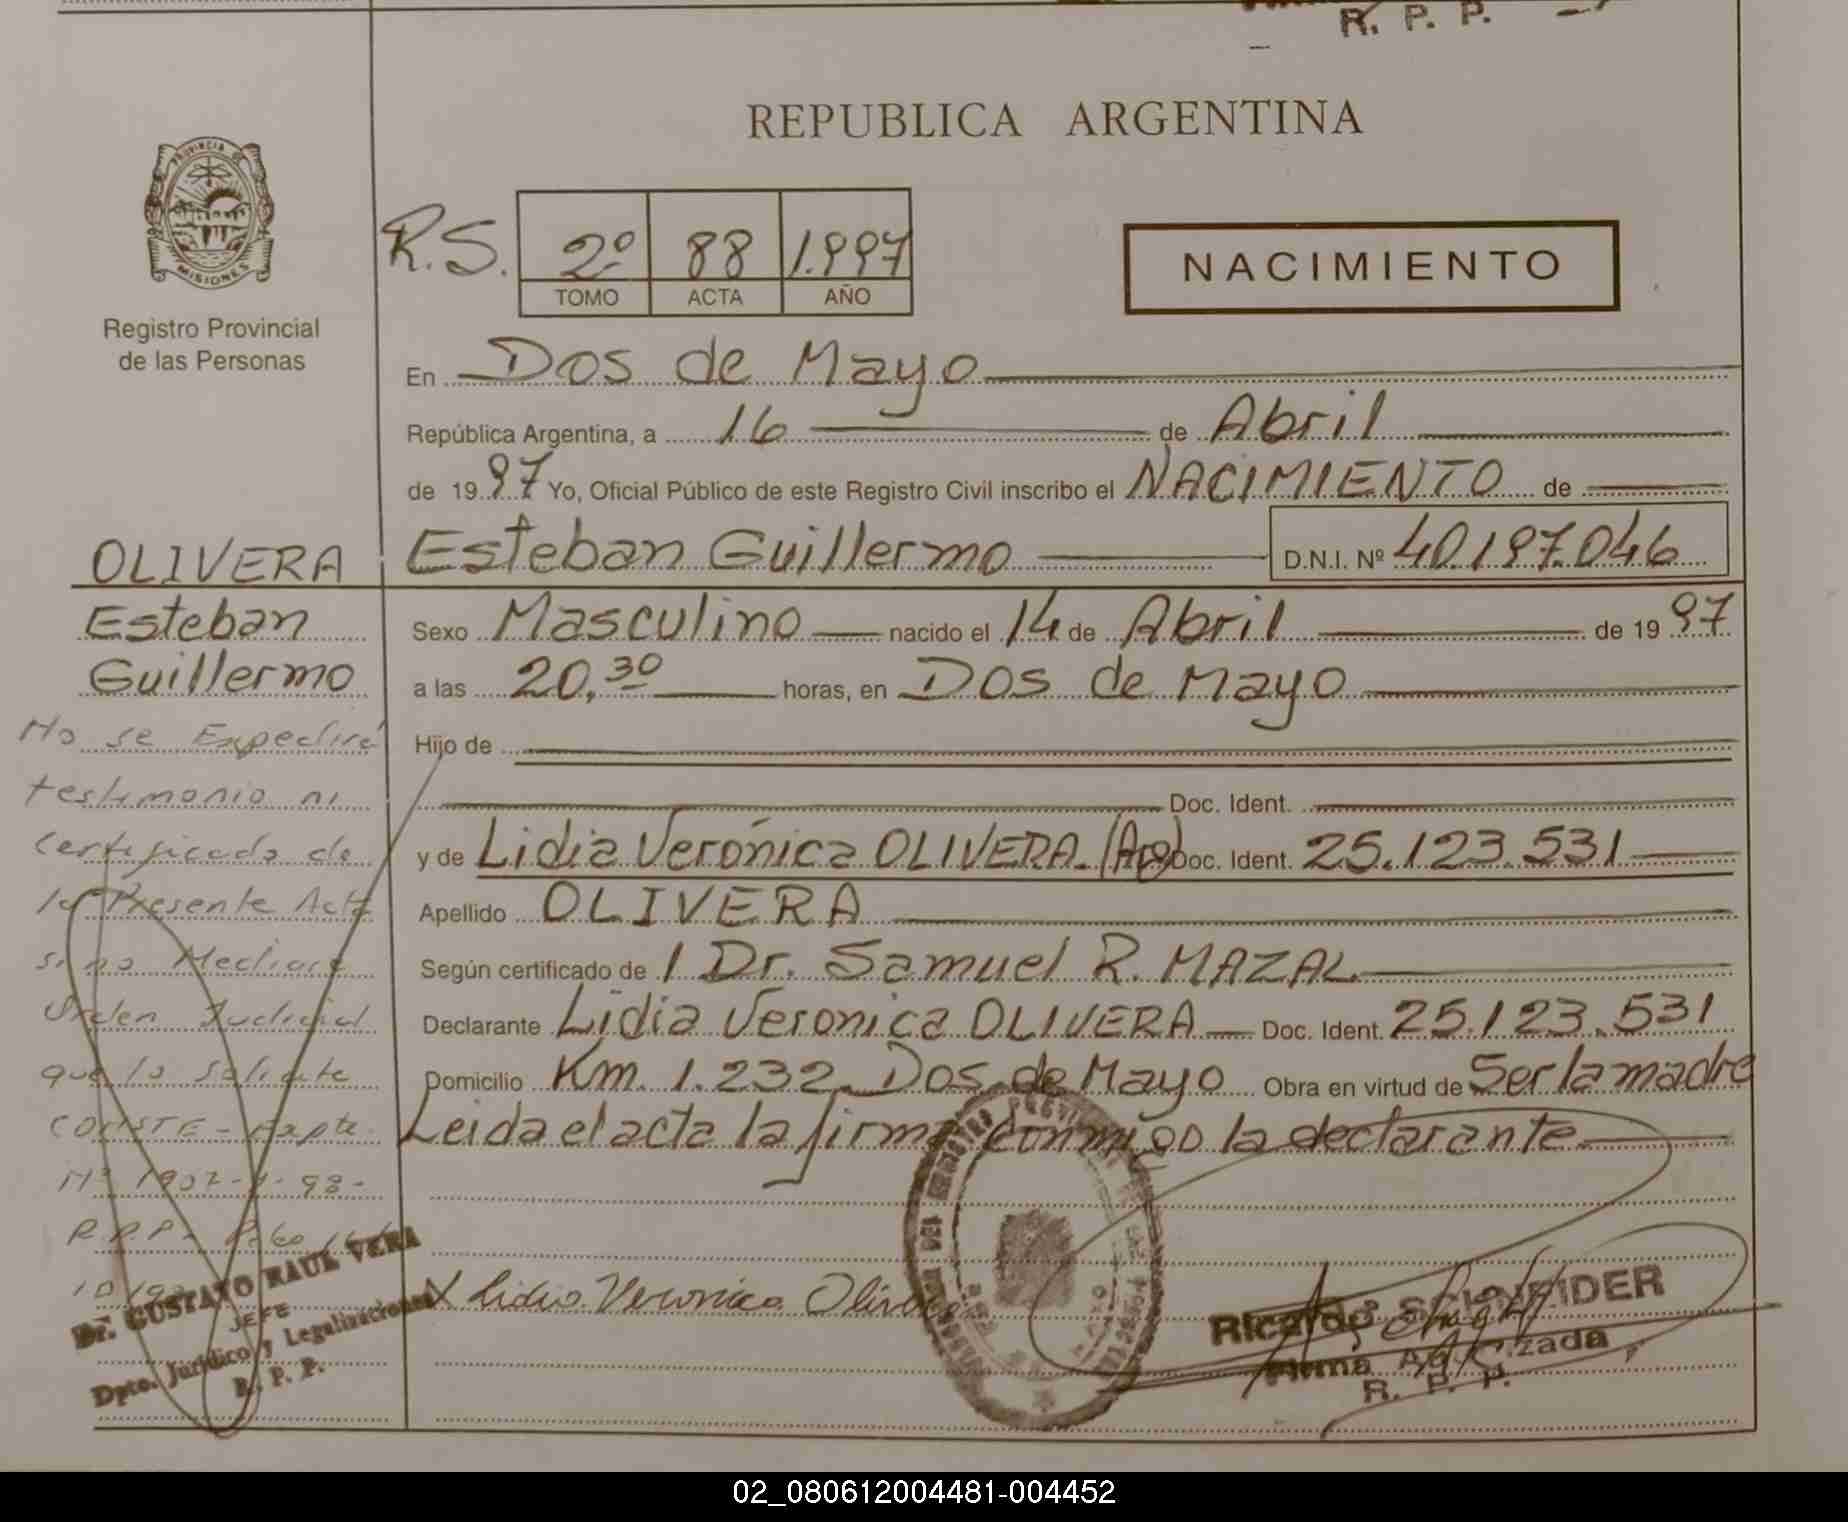 R. P. P.
REPUBLICA ARGENTINA
PROVINCIA DE
MISIONES
Registro Provincial
de las Personas
R.S.
2º 88 1.997
TOMO ACTA AÑO
NACIMIENTO
En Dos de Mayo
República Argentina, a 16 de Abril
de 1997 Yo, Oficial Público de este Registro Civil inscribo el NACIMIENTO de
Esteban Guillermo D.N.I. Nº 40.197.046
Sexo Masculino nacido el 14 de Abril de 1997
a las 20,30 horas, en Dos de Mayo
Hijo de
Doc. Ident.
y de Lidia Verónica OLIVERA. (Arg) Doc. Ident. 25.123.531
Apellido OLIVERA
Según certificado de 1 Dr. Samuel R. MAZAL
Declarante Lidia Veronica OLIVERA Doc. Ident. 25.123.531
Domicilio Km. 1.232 Dos de Mayo Obra en virtud de Ser la madre
Leida el acta la firma conmigo la declarante
X Lidia Veronica Olivera
Ricardo SCHNEIDER
Firma Autorizada
R. P. P.
OLIVERA
Esteban
Guillermo
No se Expedirá
testimonio ni
Certificado de
la Presente Acta
si no Mediare
Orden Judicial
que lo solicite
CONSTE - Expte.
Nº 1907-4-98-
R.P.P.
Dr. GUSTAVO RAUL VERA
JEFE
Dpto. Jurídico y Legalizaciones
R. P. P.
02_080612004481-004452